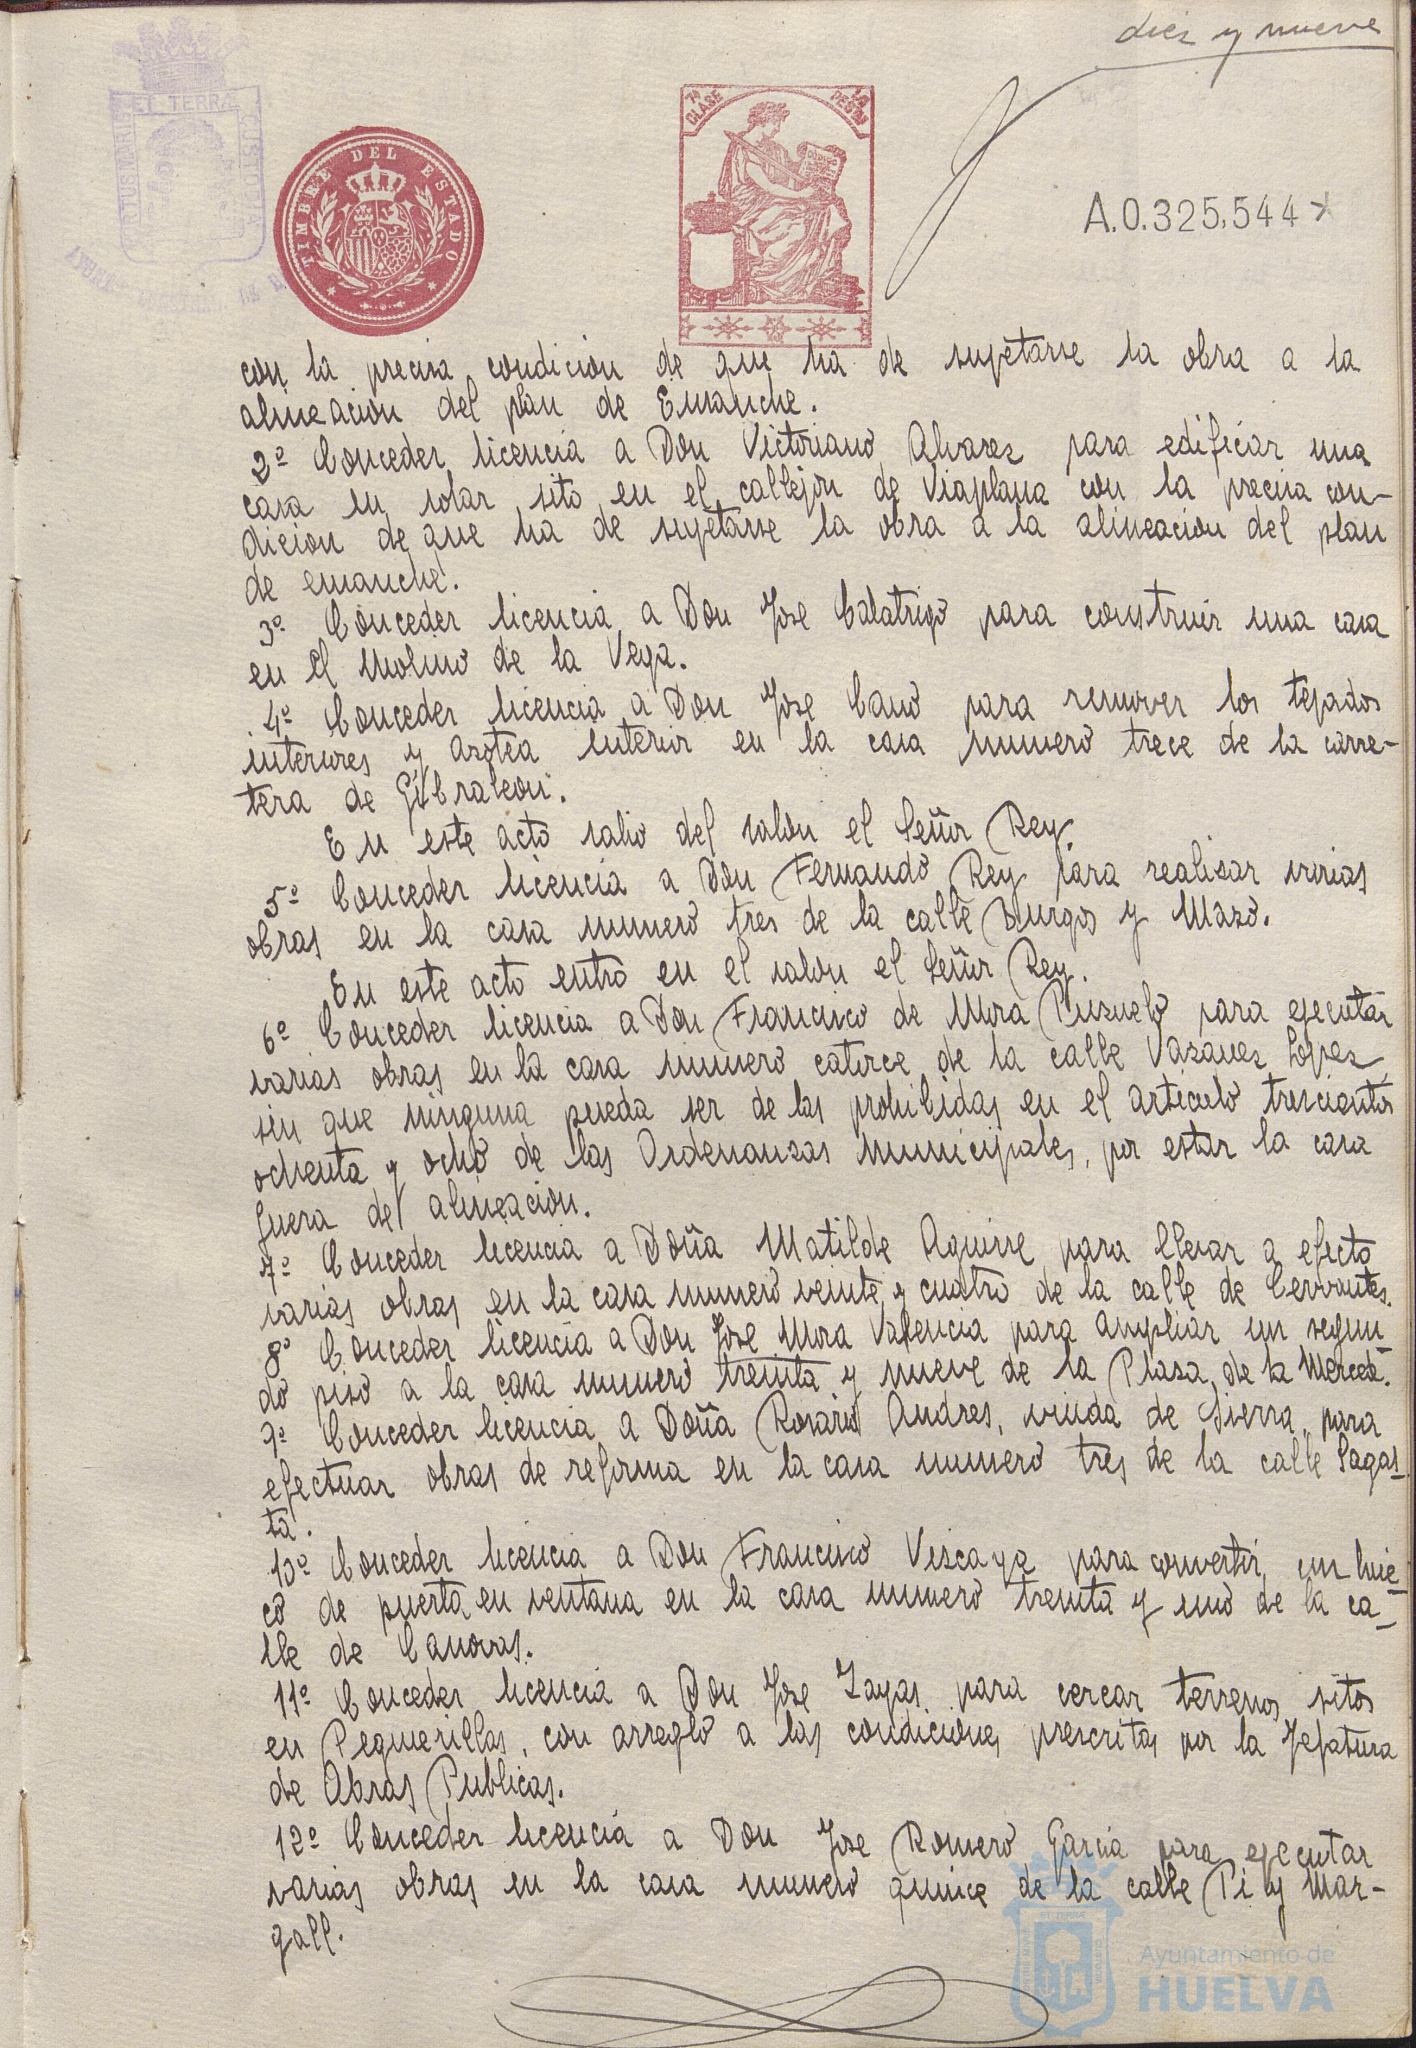 diez y nueve
ET TERRÆ
CUSTODIA
TIMBRE DEL ESTADO
7ª CLASE
A.0.325,544
con la precisa condicion de que ha de sujetarse la obra a la
alineacion del plan de Ensanche.
2º Conceder licencia a Don Victoriano Alvarez para edificar una
casa en solar sito en el callejon de Viaplana con la precisa con-
dicion de que ha de sujetarse la obra a la alineacion del plan
de ensanche.
3º Conceder licencia a Don Jose Calatrigo para construir una casa
en el Molino de la Vega.
4º Conceder licencia a Don Jose Cano para remover los tejados
interiores y azotea interior en la casa numero trece de la carre-
tera de Gibraleon.
En este acto salio del salon el Señor Rey.
5º Conceder licencia a Don Fernando Rey para realizar varias
obras en la casa numero tres de la calle Burgos y Mazo.
En este acto entro en el salon el Señor Rey.
6º Conceder licencia a Don Francisco de Mora Pizuelo para ejecutar
varias obras en la casa numero catorce de la calle Vazquez Lopez,
sin que ninguna pueda ser de las prohibidas en el articulo trescientos
ochenta y ocho de las Ordenanzas Municipales, por estar la casa
fuera de alineacion.
7º Conceder licencia a Doña Matilde Aguirre para llevar a efecto
varias obras en la casa numero veinte y cuatro de la calle de Cervantes.
8º Conceder licencia a Don Jose Mora Valencia para ampliar un segun-
do piso a la casa numero treinta y nueve de la Plaza de la Merced.
9º Conceder licencia a Doña Rosario Andres, viuda de Sierra, para
efectuar obras de reforma en la casa numero tres de la calle Sagas-
ta.
10º Conceder licencia a Don Francisco Viscaya para convertir un hue-
co de puerta en ventana en la casa numero treinta y uno de la ca-
lle de Canovas.
11º Conceder licencia a Don Jose Zayas para cercar terrenos sitos
en Peguerillas, con arreglo a las condiciones prescritas por la Jefatura
de Obras Publicas.
12º Conceder licencia a Don Jose Romero Garcia para ejecutar
varias obras en la casa numero quince de la calle Pi y Mar-
gall.
Ayuntamiento de
HUELVA